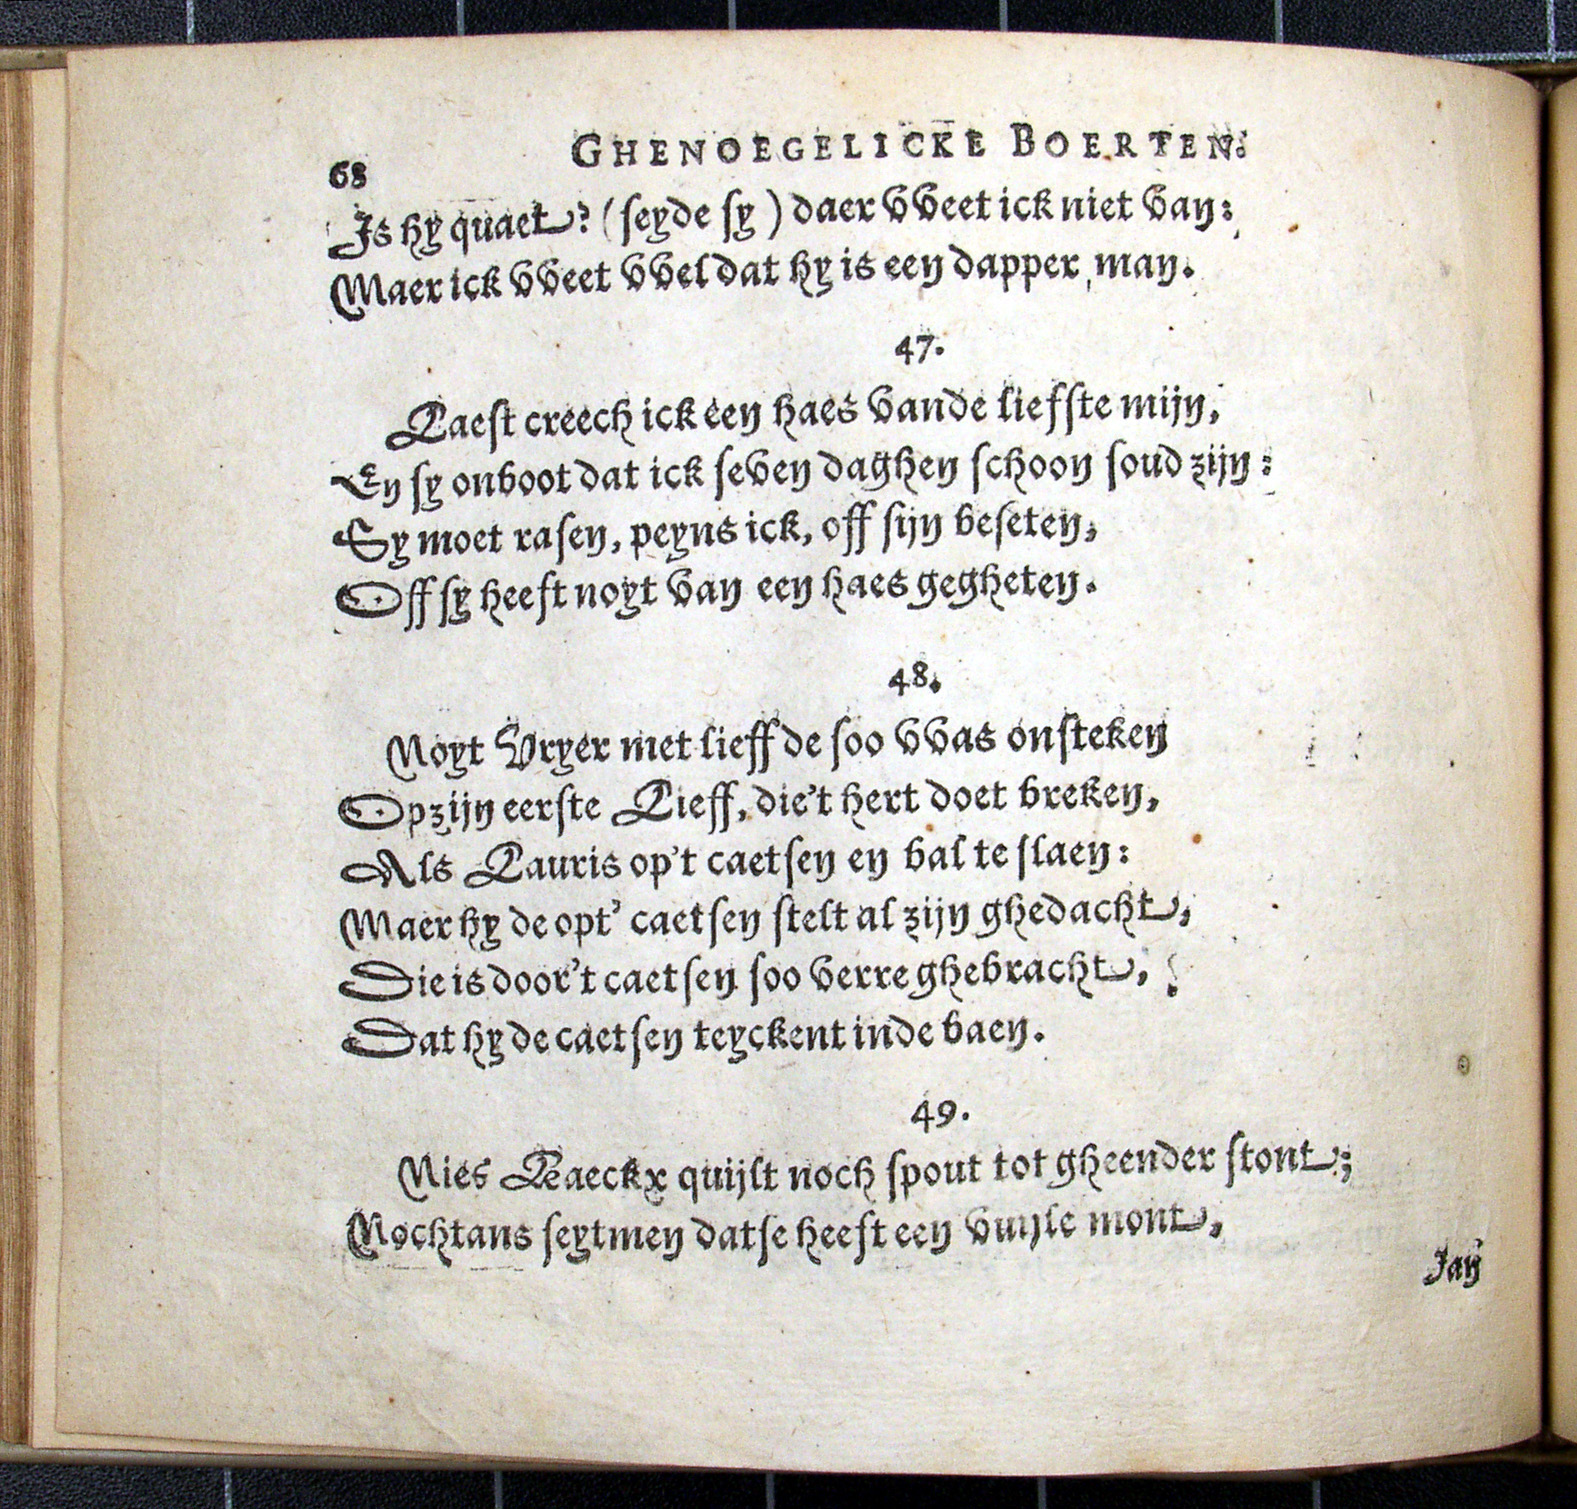 68
GHENOEGELICKE BOERTEN.
Is hy quaet? (seyde sy) daer vveet ick niet van:
Maer ick vveet vvel dat hy is een dapper man.
47.
Laest creech ick een haes vande liefste mijn,
En sy onboot dat ick seven daghen schoon soud zijn:
Sy moet rasen, peyns ick, off sijn beseten,
Off sy heeft noyt van een haes gegheten.
48.
Noyt Vryer met lieffde soo vvas onsteken
Op zijn eerste Lieff, die't hert doet breken,
Als Lauris op't caetsen en bal te slaen:
Maer hy de opt' caetsen stelt al zijn ghedacht,
Die is door't caetsen soo verre ghebracht,
Dat hy de caetsen teyckent inde baen.
49.
Nies Raeckx quijlt noch spout tot gheender stont;
Nochtans seytmen datse heeft een vuijle mont,
Jan